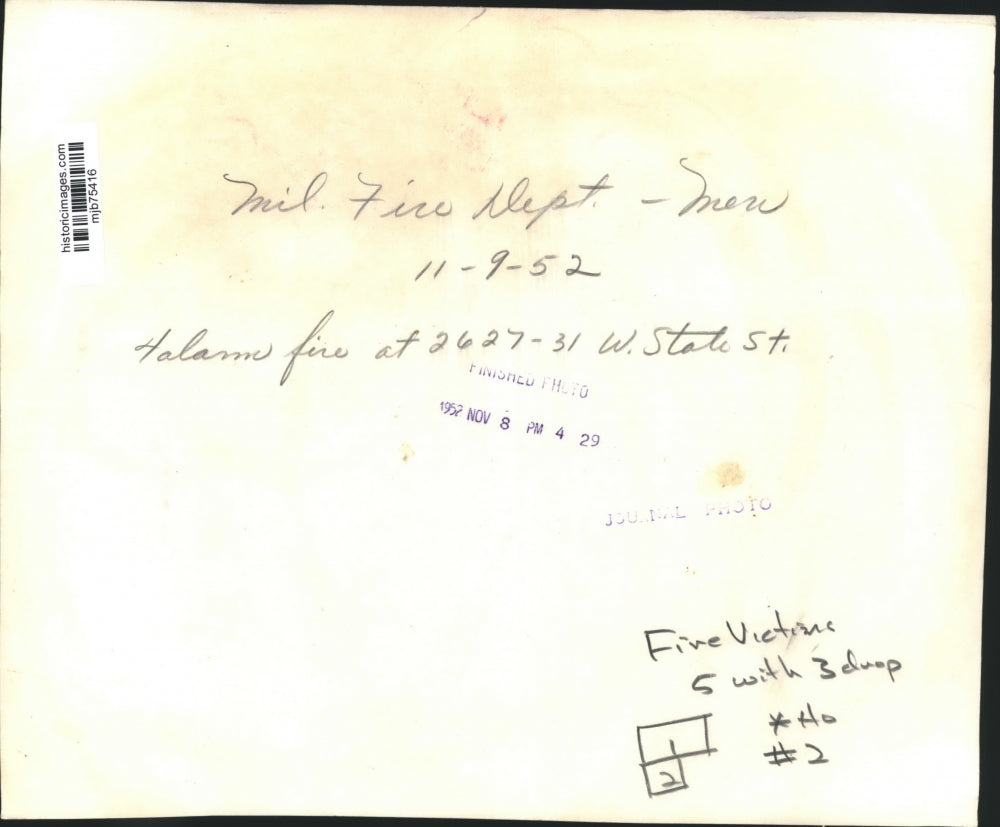 historicimages.com
mjb75416
Mil. Fire Dept. - Men
11-9-52
4 alarm fire at 2627-31 W. State St.
FINISHED PHOTO
1952 NOV 8 PM 4 29
JOURNAL PHOTO
Fire Victims
5 with 3 drop
* Ho
1
#2
2